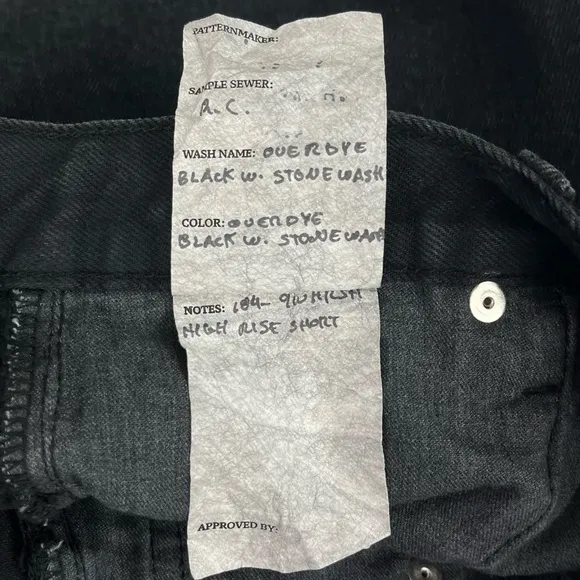 PATTERNMAKER:
SAMPLE SEWER:
A.C.
WASH NAME: OVERDYE
BLACK W. STONEWASH
COLOR: OVERDYE
BLACK W. STONEWASH
NOTES:
HIGH RISE SHORT
APPROVED BY: